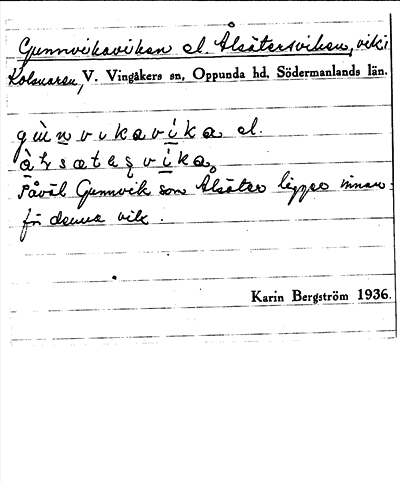 Gunnvikaviken el. Ålsätersviken, vik i
Kolsnaren, V. Vingåkers sn, Oppunda hd, Södermanlands län.
gùnvikavíka el.
Såväl Gunnvik som Ålsäter ligger innan-
för denna vik.
Karin Bergström 1936.